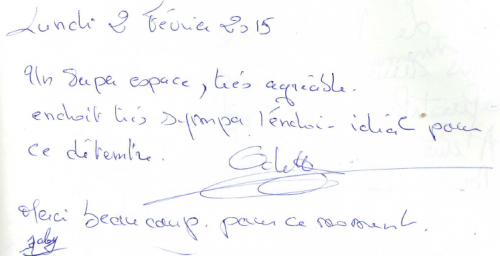 Lundi 2 Février 2015
Un Supa espace, très agréable.
endroit très sympa l'endroi- idéal pour
ce détentre.
Merci beaucoup. pour ce moment.